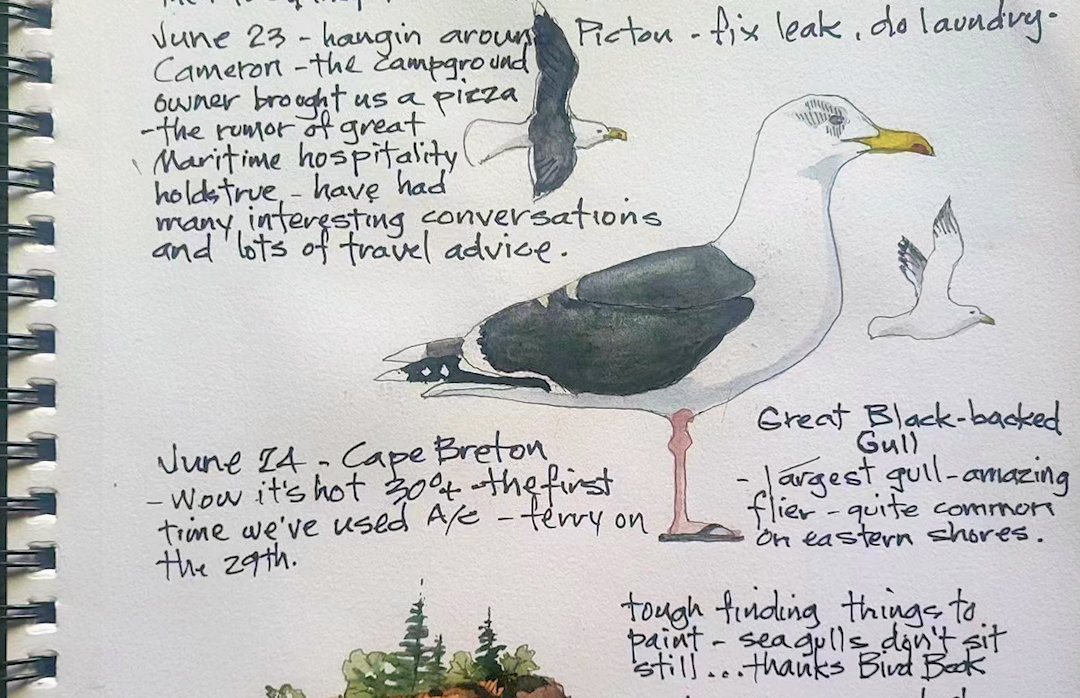 June 23 - hangin around Picton - fix leak, do laundry.
Cameron - the campground
owner brought us a pizza
- the rumor of great
Maritime hospitality
holds true - have had
many interesting conversations
and lots of travel advice.
Great Black-backed
Gull
- largest gull - amazing
flier - quite common
on eastern shores.
June 24 - Cape Breton
- Wow it's hot 30°+ - the first
time we've used A/C - ferry on
the 29th.
tough finding things to
paint - seagulls don't sit
still... thanks Bird Book